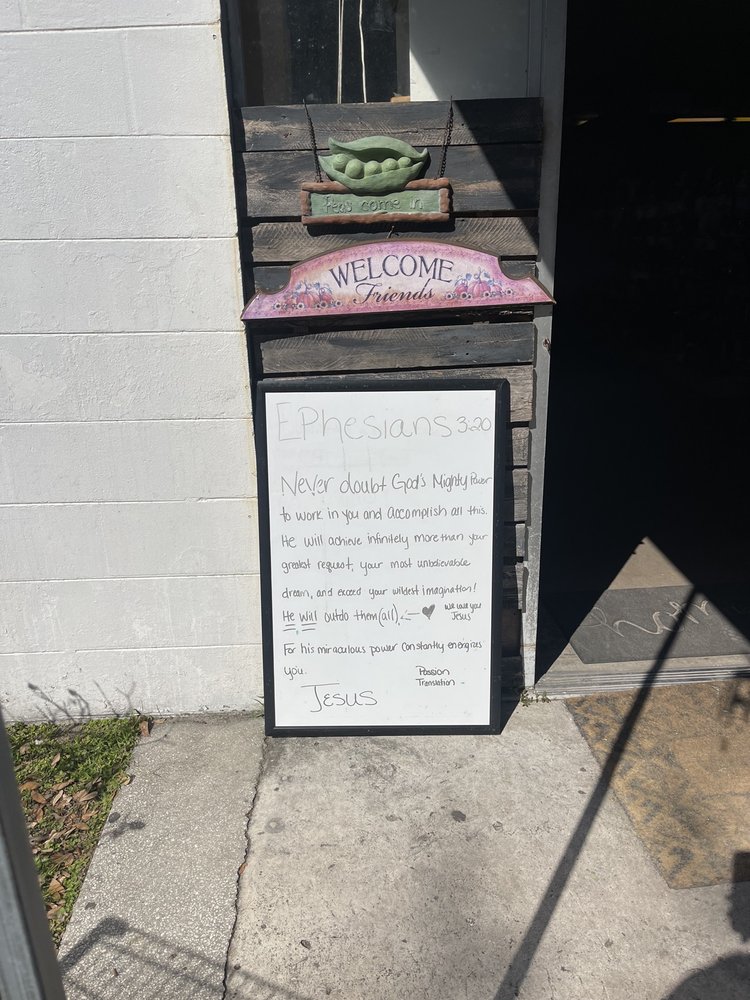 Peas come in
WELCOME
Friends
EPhesians 3:20
Never doubt God's Mighty Power
to work in you and Accomplish all this.
He will achieve infinitely more than your
greatest request, your most unbelievable
dream, and exceed your wildest imagination!
He Will outdo them (all) ← ♥ We Love you
Jesus
For his miraculous power Constantly energizes
you.
Passion
Translation -
Jesus